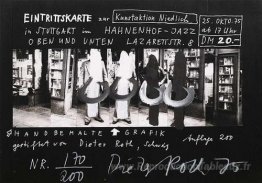 EINTRITTSKARTE zur Kunstaktion Niedlich
25. OKTO. 75
in STUTTGART im HAHNENHOF-JAZZ
ab 17 Uhr
OBEN UND UNTEN LAZARETTSTR. 8
DM 20.-
HANDBEMALTE GRAFIK
Auflage 200
gestiftet von Dieter Roth,
NR. 170/200